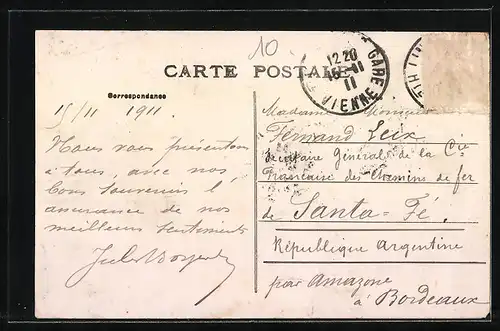 10
CARTE POSTALE
Correspondance
15/11 1911.
Nous vous présentons
à tous, avec nos
bons souvenirs l'
assurance de nos
meilleurs sentiments
12 20
11
GARE
VIENNE
Madame Monsieur
Fernand Leix
Secrétaire Général de la Cie
Française des Chemins de fer
de Santa-Fé.
République Argentine
par Amazone
à Bordeaux